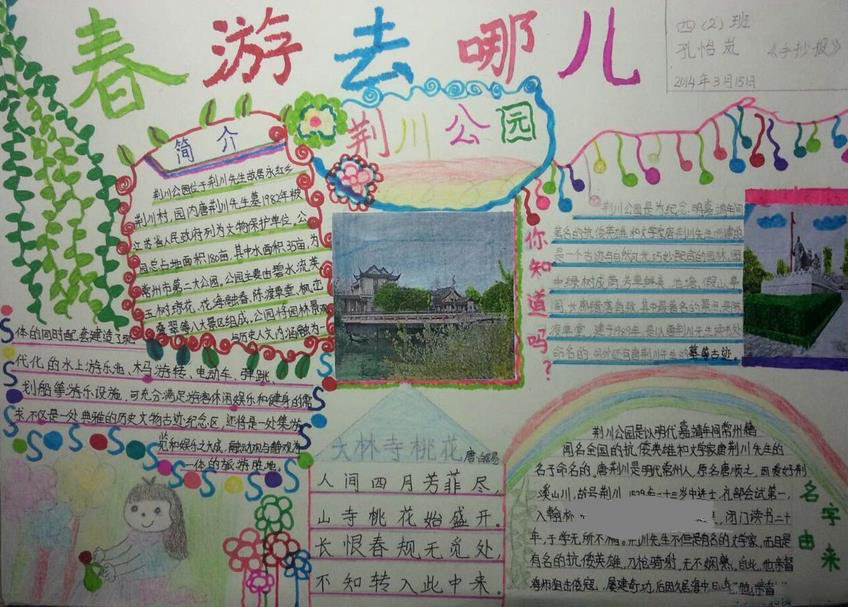 春游去哪儿
四(2)班
孔怡岚 《手抄报》
2014年3月15日
荆川公园
简介
荆川公园位于荆川先生故居永红乡
荆川村,园内唐荆川先生墓1982年被
江苏省人民政府列为文物保护单位,公
园总占地面积180亩,其中水面积35亩,为
常州市第二大公园。公园主要由碧水流芳
玉树琼花、花海融春、陈渡
叠翠等八大景区组成,公园将园林景观
与历史人文内涵融为一
体的同时配套建造了现
代化的水上游乐池、木马游转、电动车、弹跳、
划船等游乐设施,可充分满足游客休闲娱乐和健身的需
求,不仅是一处典雅的历史文物古迹纪念区,还将是一处集游
览和娱乐之大成,融动观与静观为
一体的旅游胜地。
你知道吗?
荆川公园是为纪念明嘉靖年间
著名的抗倭英雄和文学家唐荆川先生而建的
是一个古迹与自然风光巧妙配合的园林,园
中绿树成荫
建于1989年,是以唐荆川先生
命名的,另外还有唐荆川先生的墓等古迹。
大林寺桃花
唐:白居易
人间四月芳菲尽,
山寺桃花始盛开。
长恨春规无觅处,
不知转入此中来。
名字由来
荆川公园是以明代嘉靖年间常州籍
闻名全国的抗倭英雄和文学家唐荆川先生的
名字命名的。唐荆川是明代常州人,原名唐顺之,因爱好荆
溪山川,故号荆川,1529年二十三岁中进士,礼部会试第一,
入翰林
,闭门读书二十
年,于学无所不 。荆川先生不但是有名的文学家,而且是
有名的抗倭英雄,刀枪骑射,无不娴熟,自此,他亲督
海船狙击倭寇,屡建奇功,后因